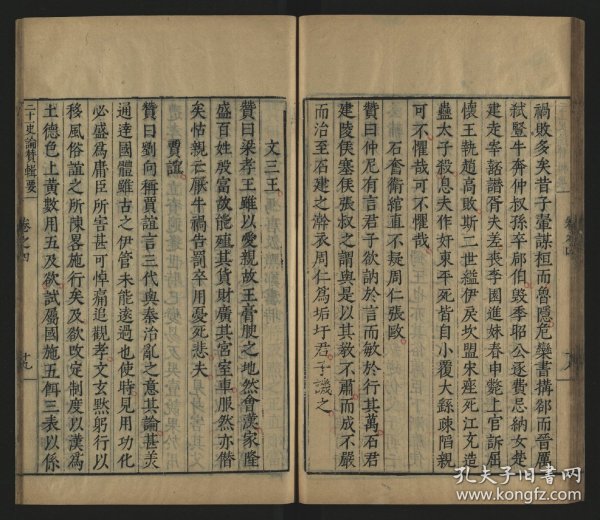 禍敗多矣昔子翬謀桓而魯隱危欒書搆郤而晉厲
弒豎牛奔仲叔孫卒郈伯毀季昭公逐費忌納女楚
建走宰嚭譖胥夫差喪李園進妹春申斃上官訴屈
懷王執趙高敗斯二世縊伊戾坎盟宋痤死江充造
蠱太子殺息夫作奸東平死皆自小覆大繇疎陷親
可不懼哉可不懼哉
石奮衛綰直不疑周仁張歐
贊曰仲尼有言君子欲訥於言而敏於行其萬石君
建陵侯塞侯張叔之謂與是以其教不肅而成不嚴
而治至石建之澣衣周仁為垢圬君子譏之
文三王
贊曰梁孝王雖以愛親故王膏腴之地然會漢家隆
盛百姓殷富故能殖其貨財廣其宮室車服然亦僭
矣怙親亡厭牛禍告罰卒用憂死悲夫
賈誼
贊曰劉向稱賈誼言三代與秦治亂之意其論甚美
通達國體雖古之伊管未能遠過也使時見用功化
必盛為庸臣所害甚可悼痛追觀孝文玄默躬行以
移風俗誼之所陳畧施行矣及欲改定制度以漢為
土德色上黃數用五及欲試屬國施五餌三表以係
二十一史論贊輯要
卷之四
十九
孔夫子旧书网
www.kongfz.com